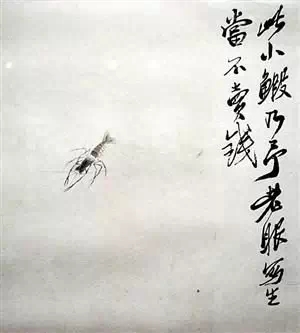 此小蝦乃予老眼寫生
當不賣錢